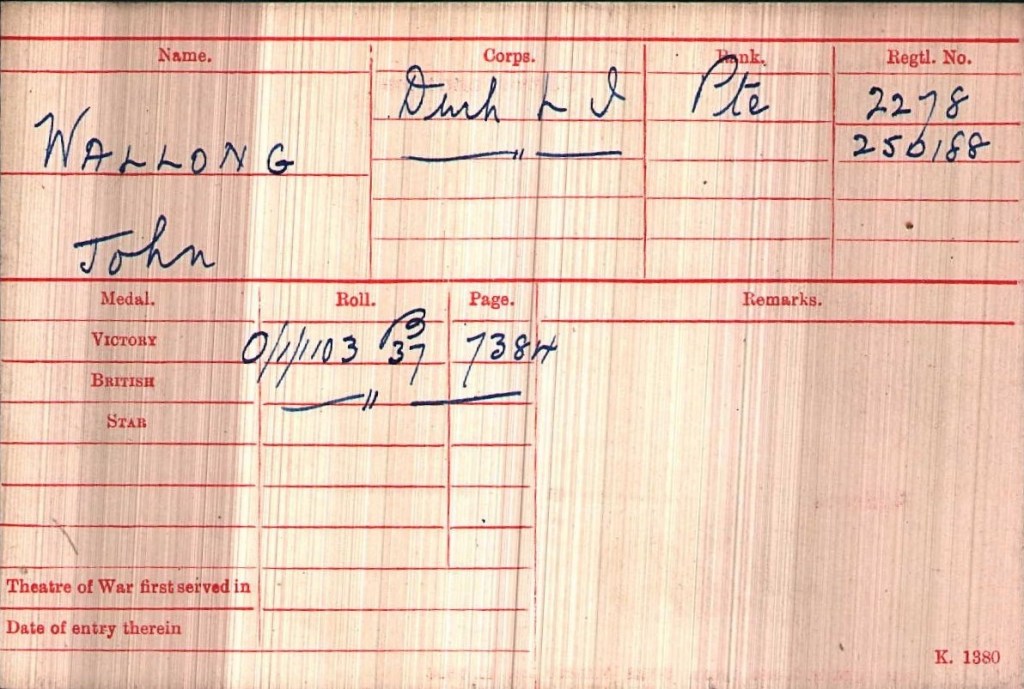 Name. Corps. Rank. Regtl. No.
WALLONG Durh L I Pte 2278
—〃— 250188
John
Medal. Roll. Page. Remarks.
VICTORY O/1/1103 B37 7384
BRITISH —〃—
STAR
Theatre of War first served in
Date of entry therein
K. 1380